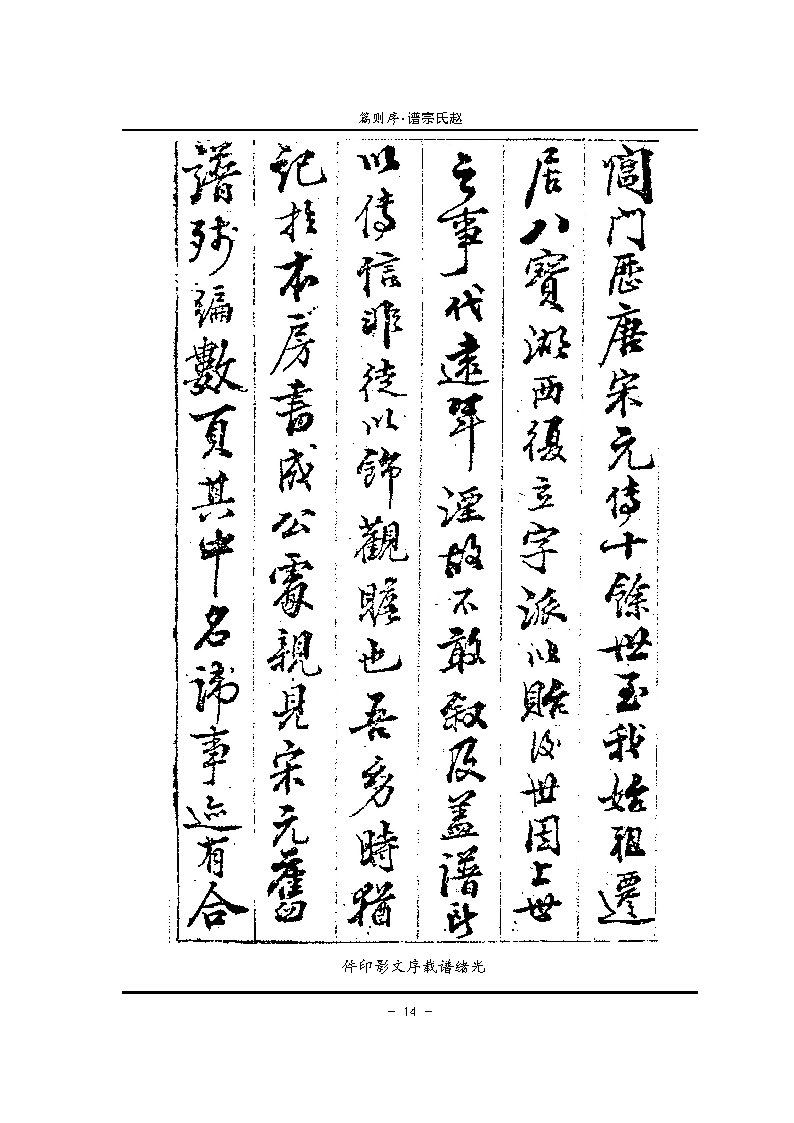 赵氏宗谱·序则篇
閶門歷唐宋元傳十餘世至我始祖遷
居八寶湖西復立字派以貽後世因上世
之事代遠年湮故不敢叙及蓋譜所
以傳信非徒以飾觀瞻也吾幼時猶
記於本房書成公處親見宋元舊
譜殘編數頁其中名諱事迹有合
光绪谱载序文影印件
- 14 -